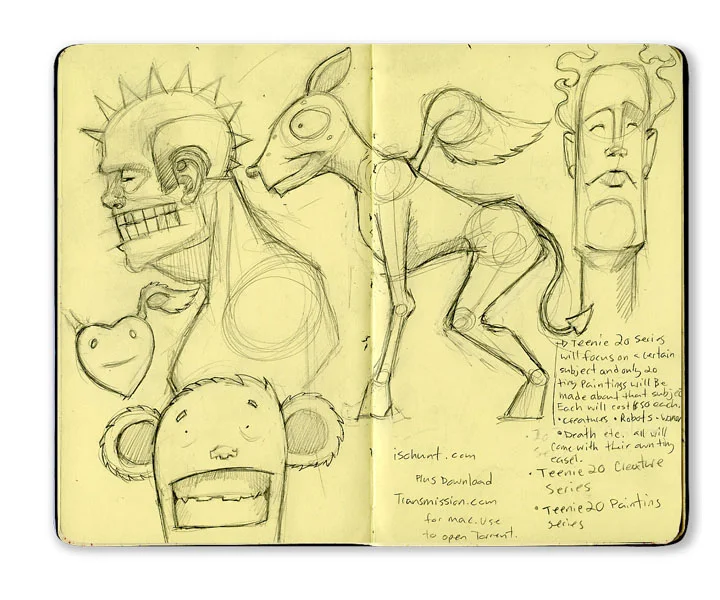 ischunt.com
Plus Download
Transmission.com
for mac. Use
to open Torrent.
Teenie 20 Series
will focus on a certain
subject and only 20
tiny Paintings will Be
made about that subject
Each will cost $50 each.
• Creatures • Robots •
• Death etc. all will
come with their own tiny
easel.
• Teenie 20 Creature
Series
• Teenie 20 Painting
Series